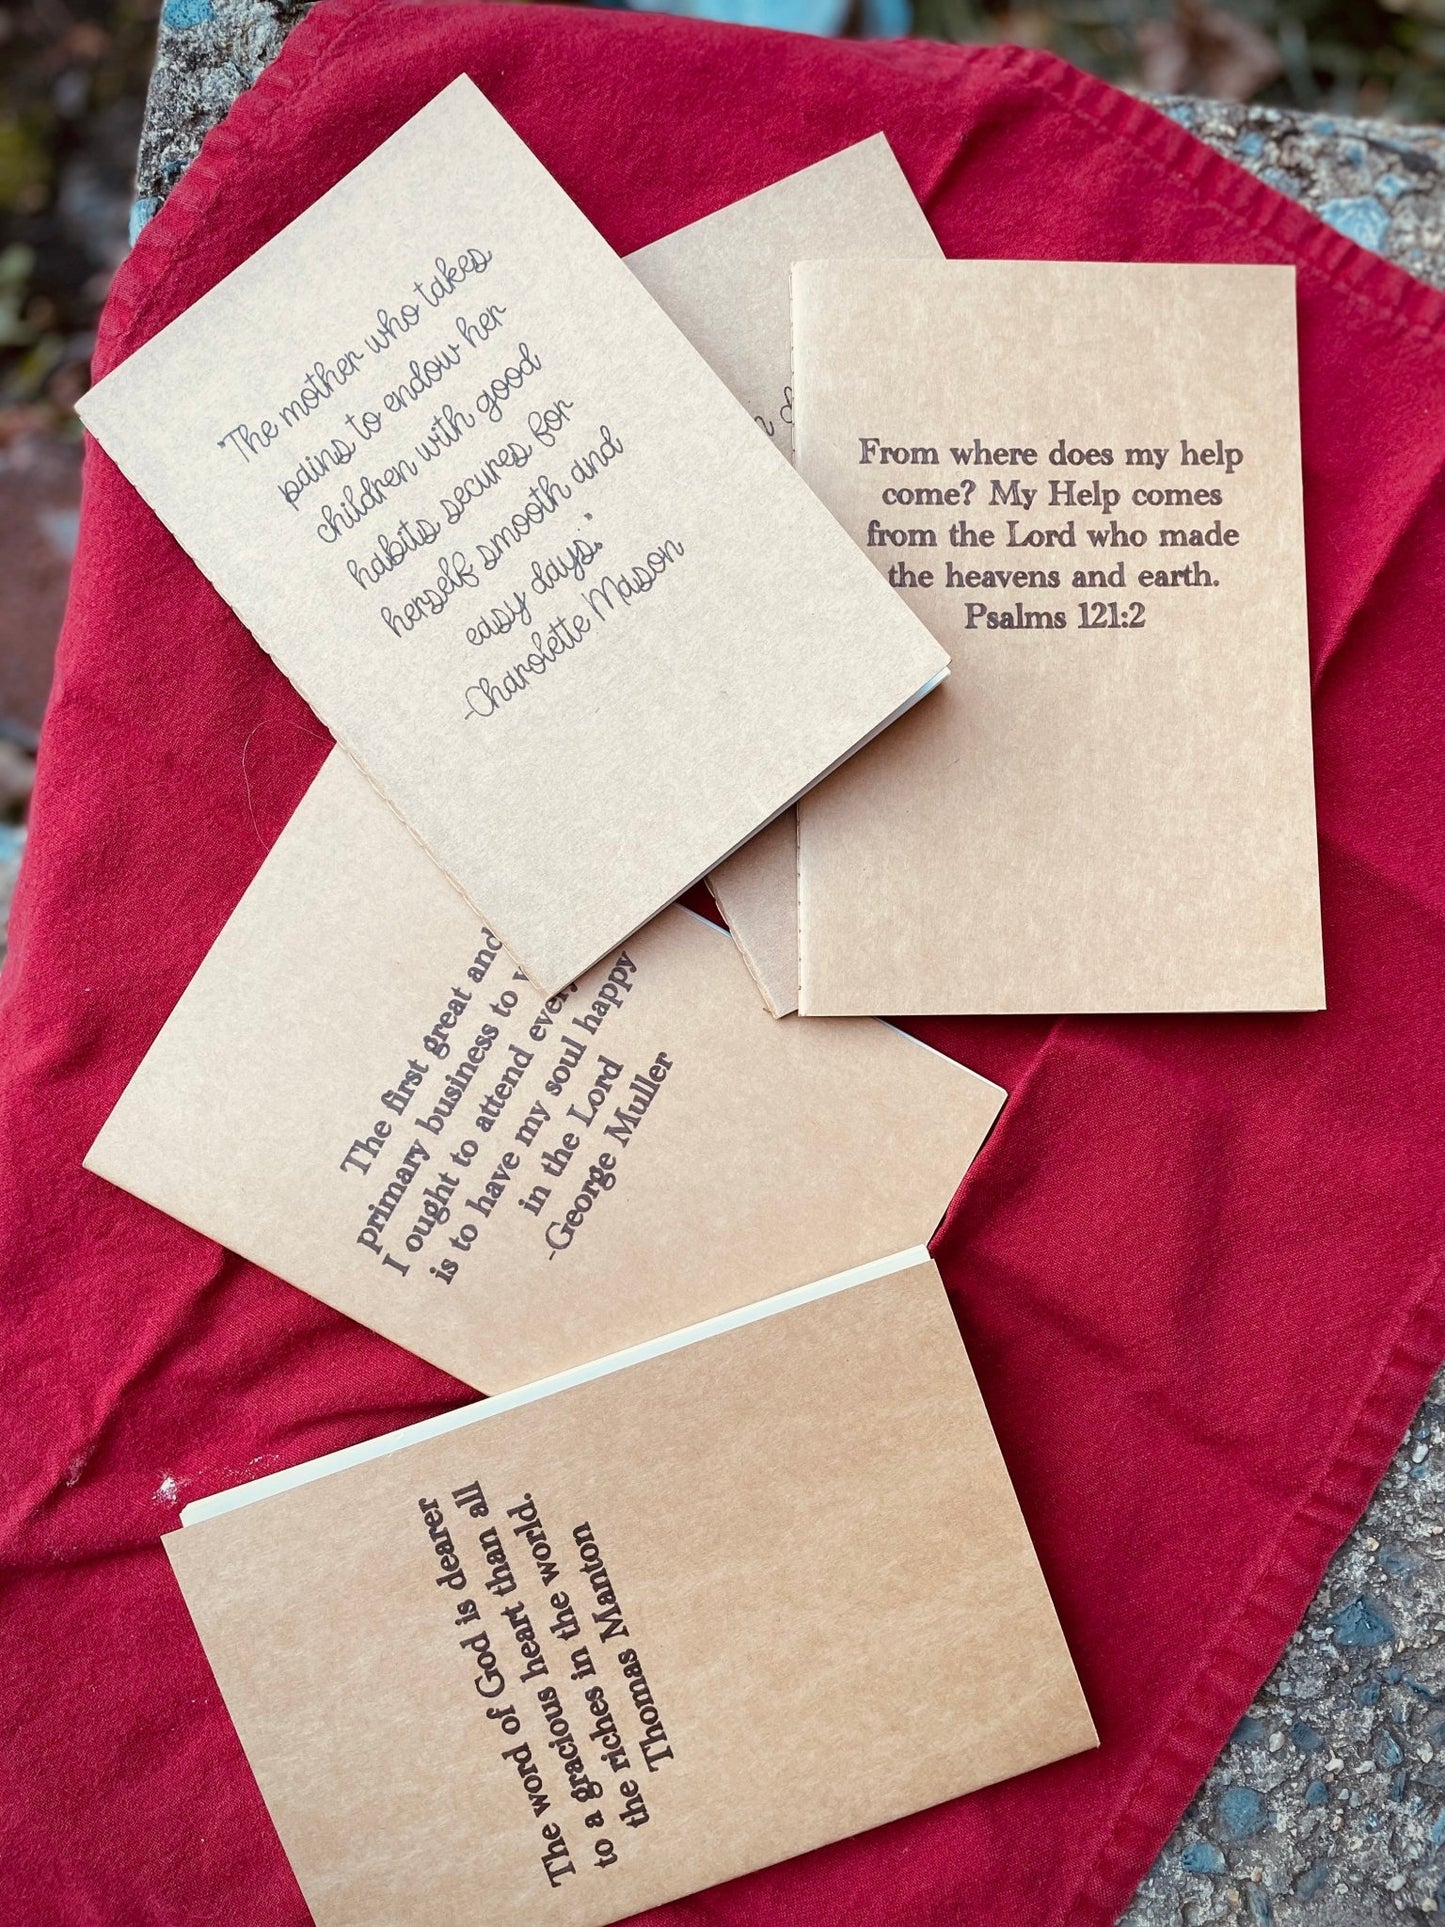 "The mother who takes
pains to endow her
children with good
habits secures for
herself smooth and
easy days."
-Charolette Mason
From where does my help
come? My Help comes
from the Lord who made
the heavens and earth.
Psalms 121:2
The first great and
primary business to
I ought to attend every
is to have my soul happy
in the Lord
-George Muller
The word of God is dearer
to a gracious heart than all
the riches in the world.
Thomas Manton